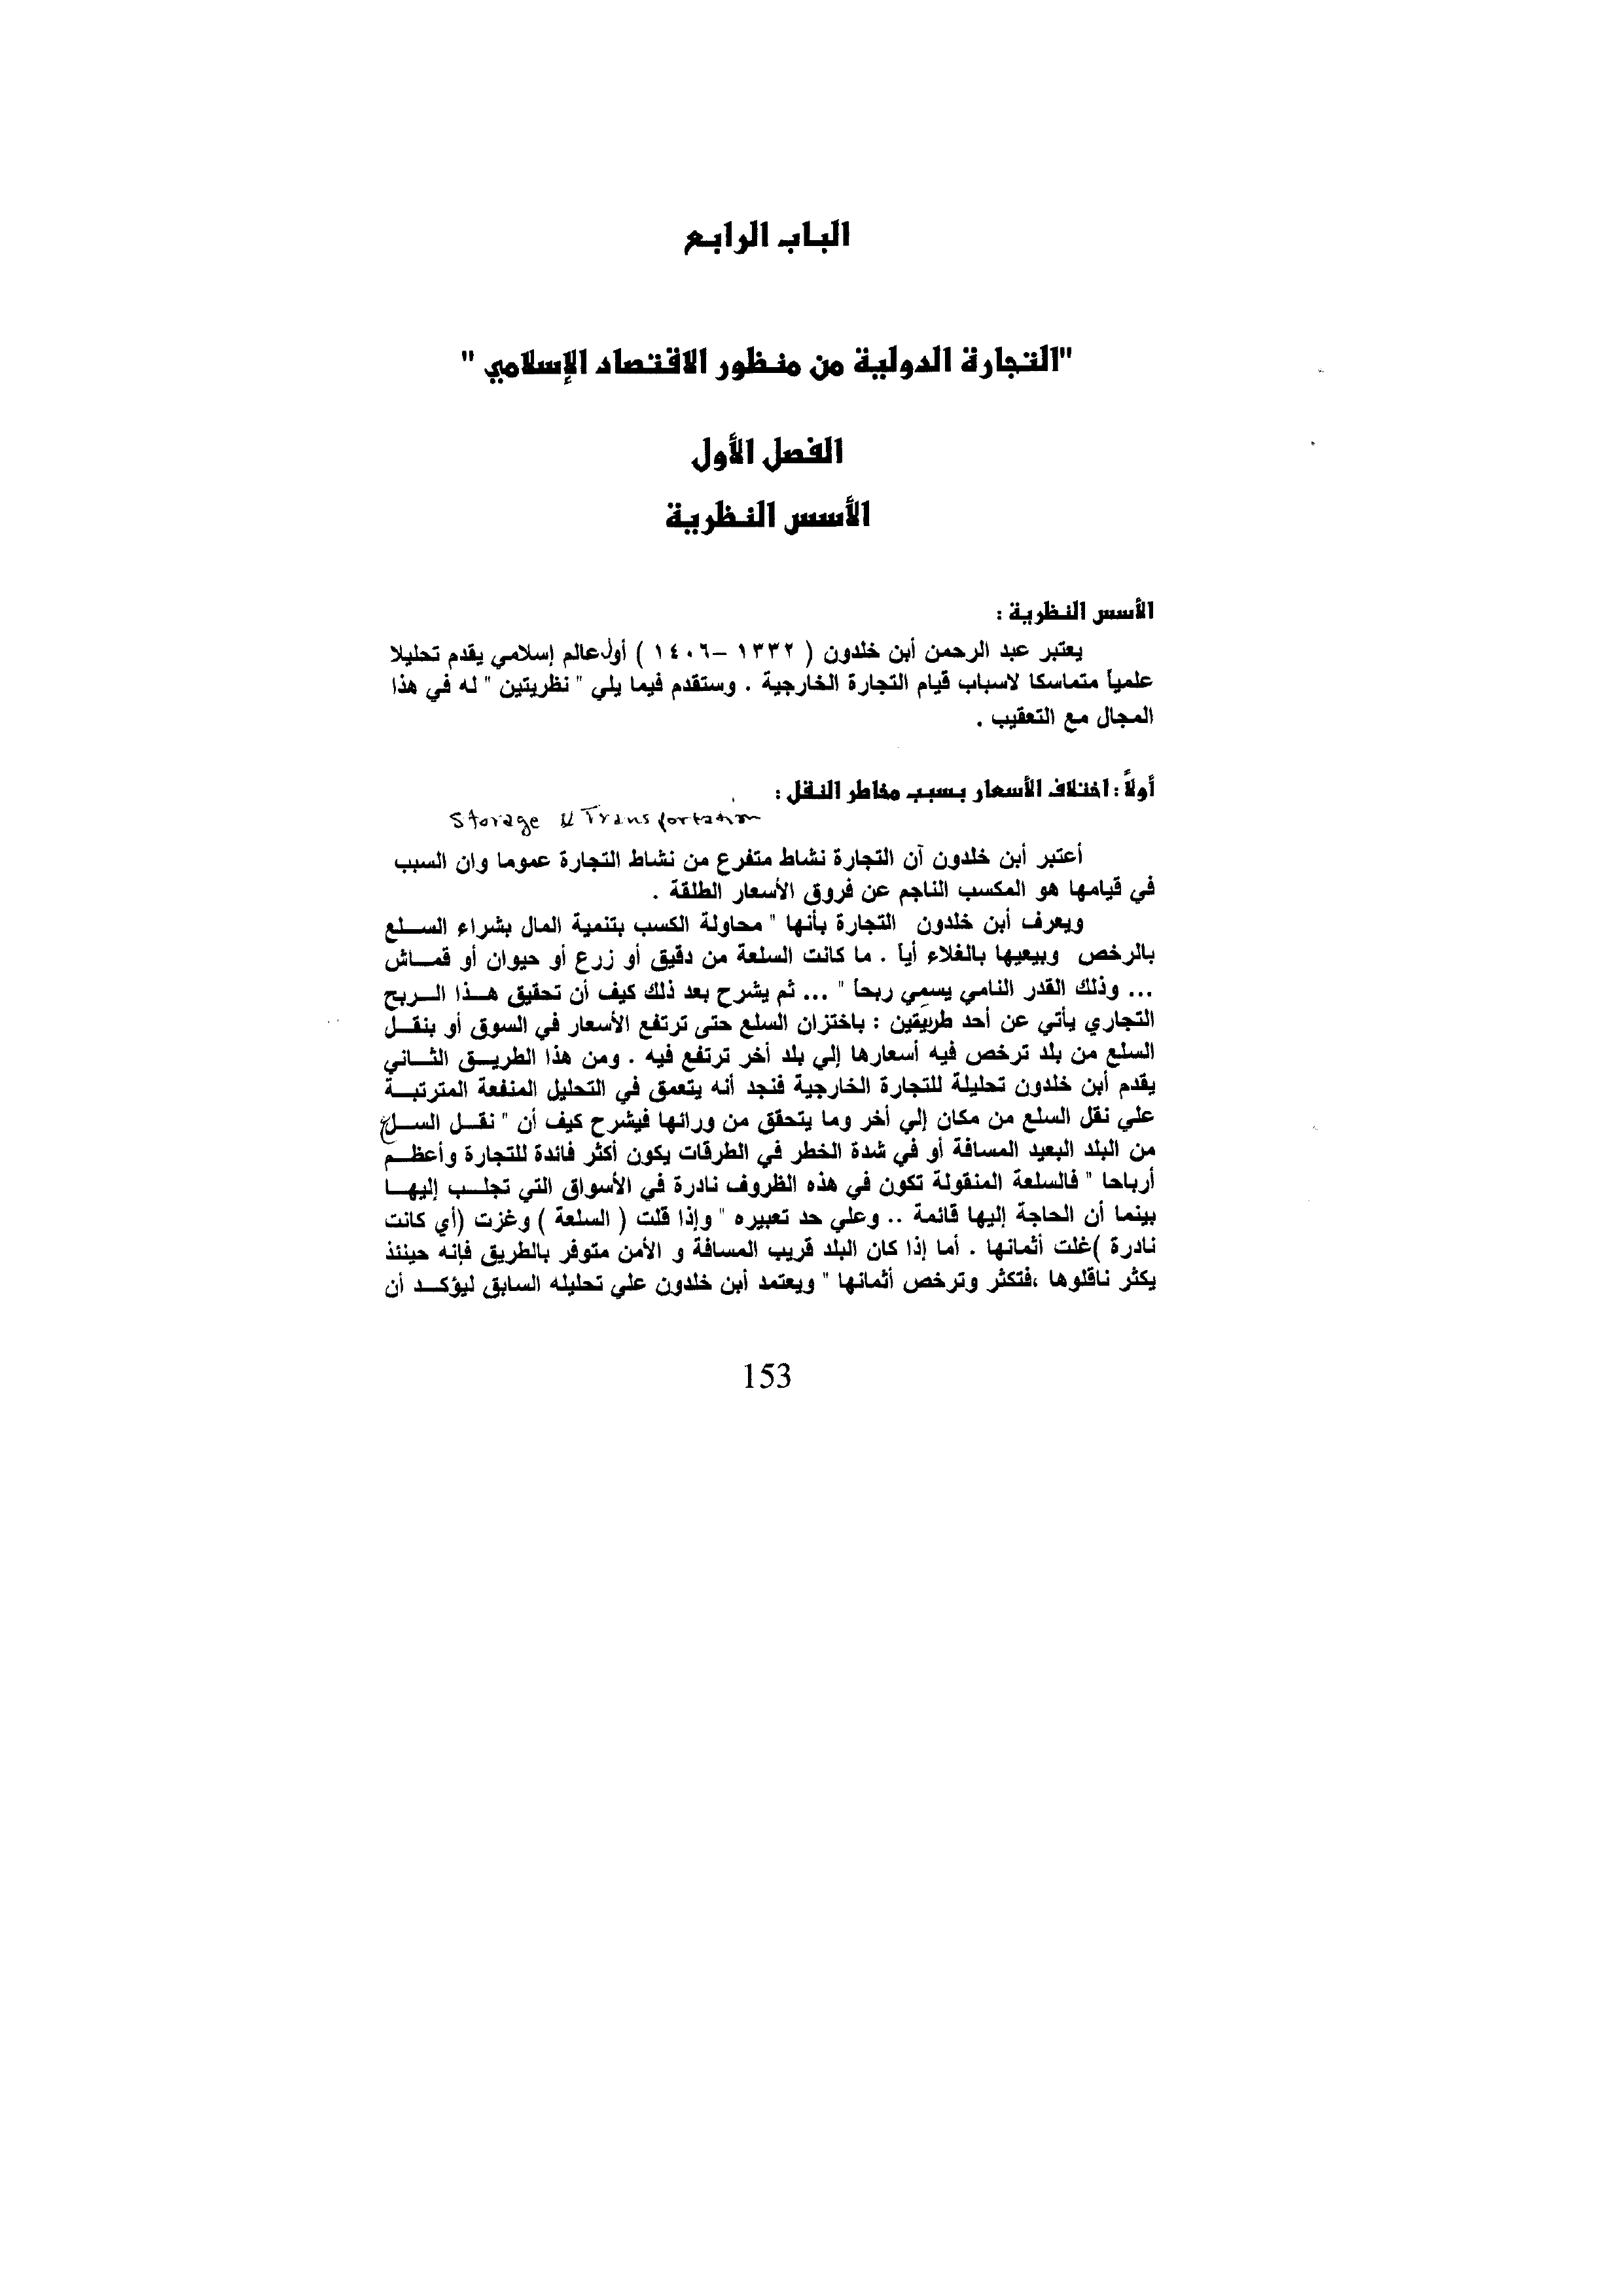 الباب الرابع
"التجارة الدولية من منظور الاقتصاد الإسلامي "
الفصل الأول
الأسس النظرية
الأسس النظرية :
يعتبر عبد الرحمن أبن خلدون ( ١٣٣٢ –١٤٠٦ ) أول عالم إسلامي يقدم تحليلا
علمياً متماسكا لاسباب قيام التجارة الخارجية . وستقدم فيما يلي " نظريتين " له في هذا
المجال مع التعقيب .
أولاً : اختلاف الأسعار بسبب مخاطر النقل :
Storage & Transportation
أعتبر أبن خلدون آن التجارة نشاط متفرع من نشاط التجارة عموما وان السبب
في قيامها هو المكسب الناجم عن فروق الأسعار الطلقة .
ويعرف أبن خلدون التجارة بأنها " محاولة الكسب بتنمية المال بشراء الســلع
بالرخص وبيعيها بالغلاء أياً . ما كانت السلعة من دقيق أو زرع أو حيوان أو قمــاش
... وذلك القدر النامي يسمي ربحاً " ... ثم يشرح بعد ذلك كيف أن تحقيق هــذا الــربح
التجاري يأتي عن أحد طريقين : باختزان السلع حتى ترتفع الأسعار في السوق أو بنقــل
السلع من بلد ترخص فيه أسعارها إلي بلد أخر ترتفع فيه . ومن هذا الطريــق الثــاني
يقدم أبن خلدون تحليلة للتجارة الخارجية فنجد أنه يتعمق في التحليل المنفعة المترتبــة
علي نقل السلع من مكان إلي أخر وما يتحقق من ورائها فيشرح كيف أن " نقــل الســلع
من البلد البعيد المسافة أو في شدة الخطر في الطرقات يكون أكثر فائدة للتجارة وأعظــم
أرباحا " فالسلعة المنقولة تكون في هذه الظروف نادرة في الأسواق التي تجلــب إليهــا
بينما أن الحاجة إليها قائمة .. وعلي حد تعبيره " وإذا قلت ( السلعة ) وغزت (أي كانت
نادرة )غلت أثمانها . أما إذا كان البلد قريب المسافة و الأمن متوفر بالطريق فإنه حينئذ
يكثر ناقلوها ،فتكثر وترخص أثمانها " ويعتمد أبن خلدون علي تحليله السابق ليؤكــد أن
153